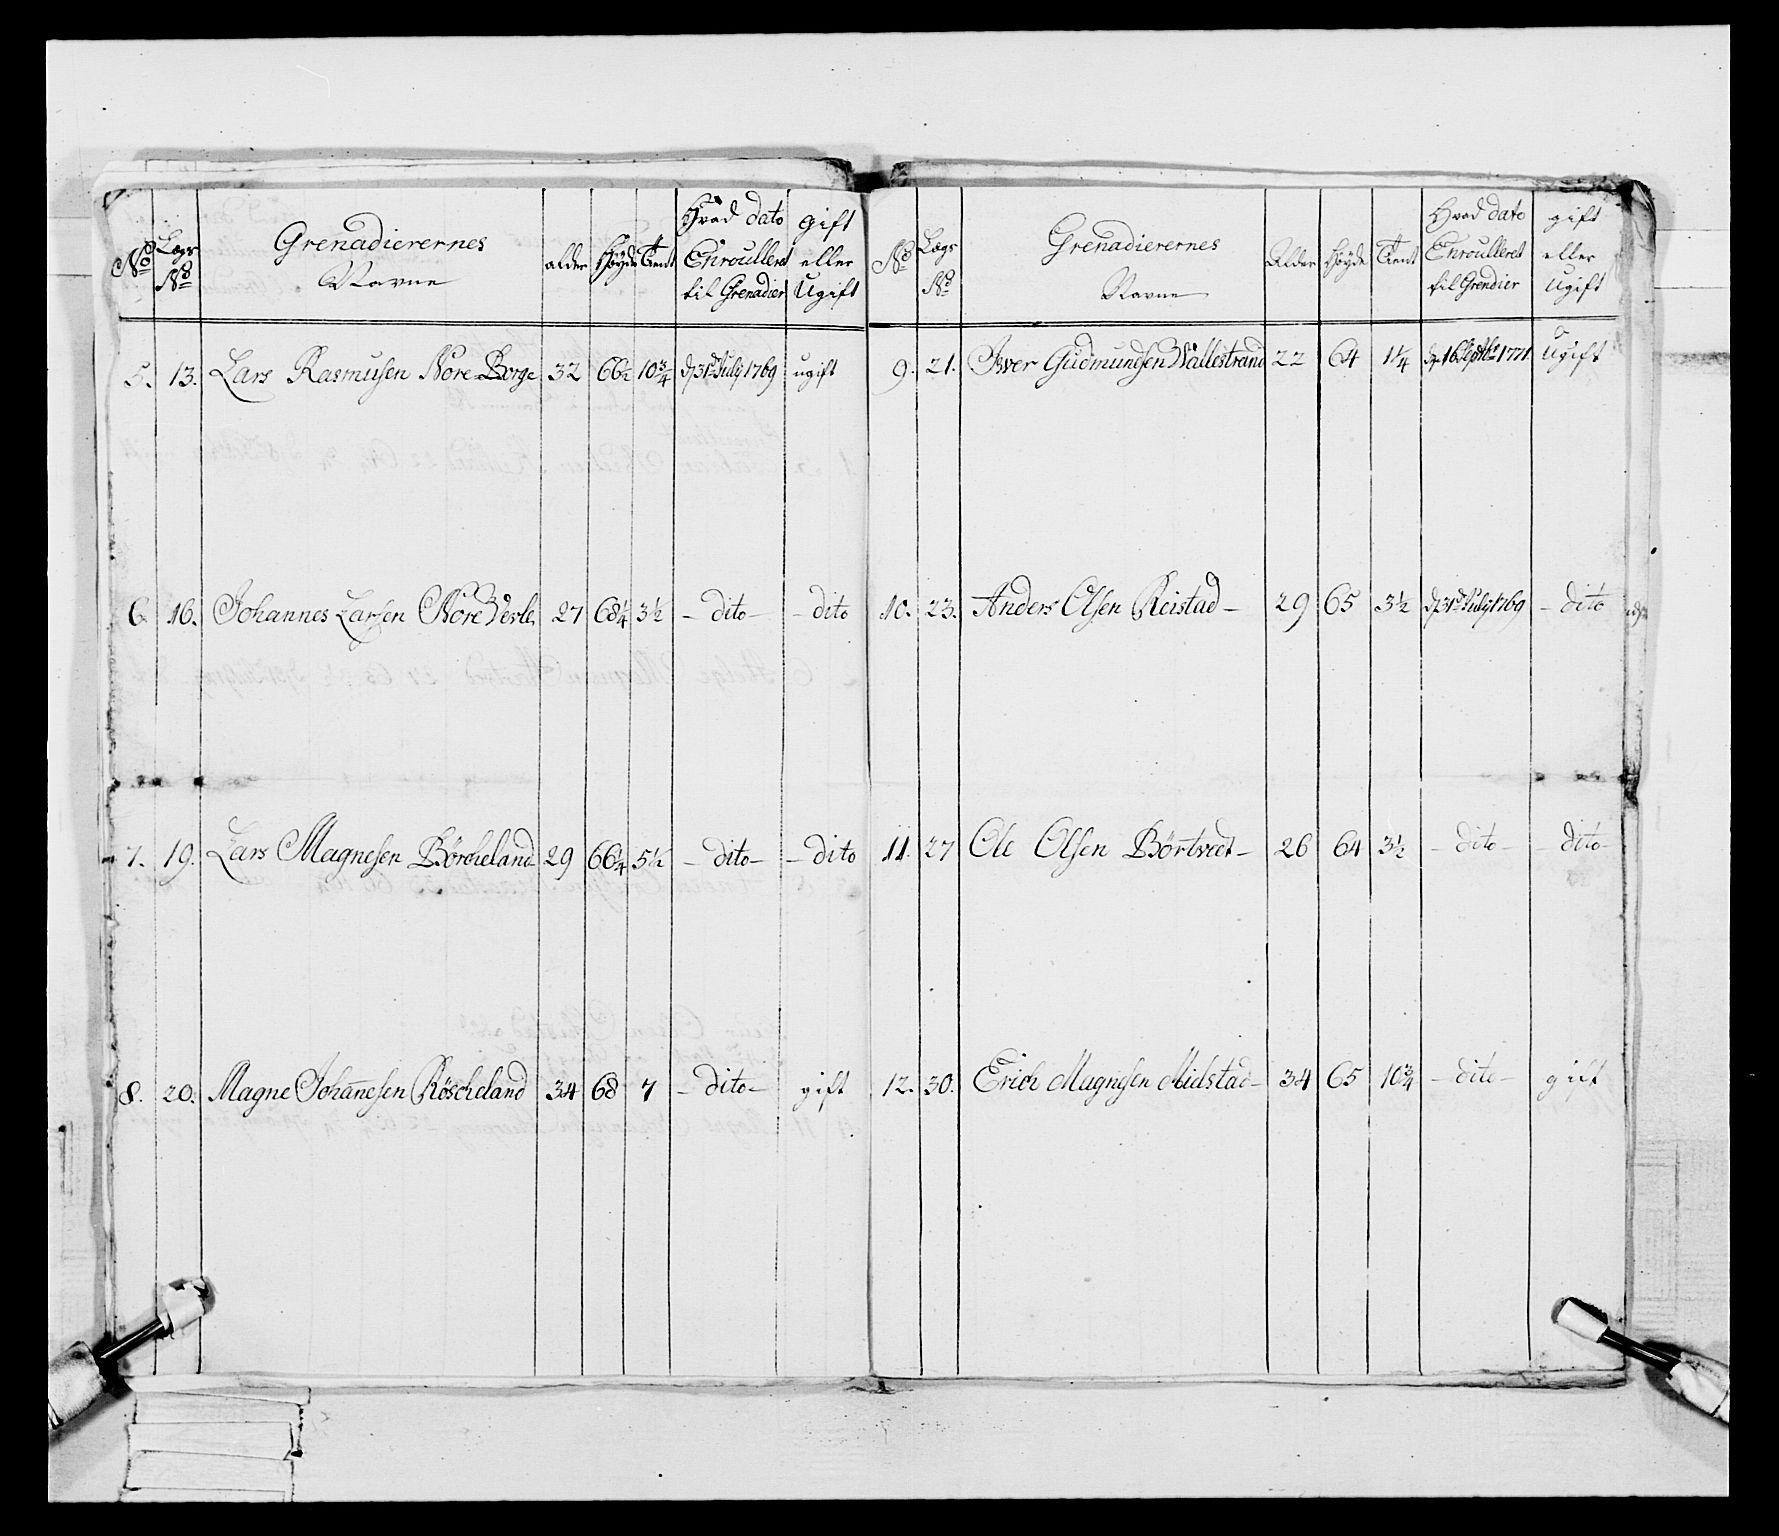 No Lægs No Grenadierernes Navne alder Høyde Tent Hvad dato Enroulleret til Grenadier gift eller Ugift
5. 13. Lars Rasmusen Nore Borge 32 66½ 10¾ d 31te July 1769 ugift
6. 16. Johannes Larsen Nore Verle 27 68¼ 3½ - dito - - dito
7. 19. Lars Magnesen Börcheland 29 66¼ 5½ - dito - - dito
8. 20. Magne Johannesen Röscheland 34 68 7 - dito - gift
No Lægs No Grenadierernes Navne Alder Høyde Tent Hvad dato Enroulleret til Grendier gift eller Ugift
9. 21. Iver Gudmundsen Wallestrand 22 64 1¼ d 16 Septbr 1771. Ugift
10. 23. Anders Olsen Reistad - 29 65 3½ d 31te July 1769 - dito
11. 27 Ole Olsen Börtveet - 26 64 3½ - dito - - dito -
12. 30. Erich Magnesen Midstad - 34 65 10¾ - dito - gift